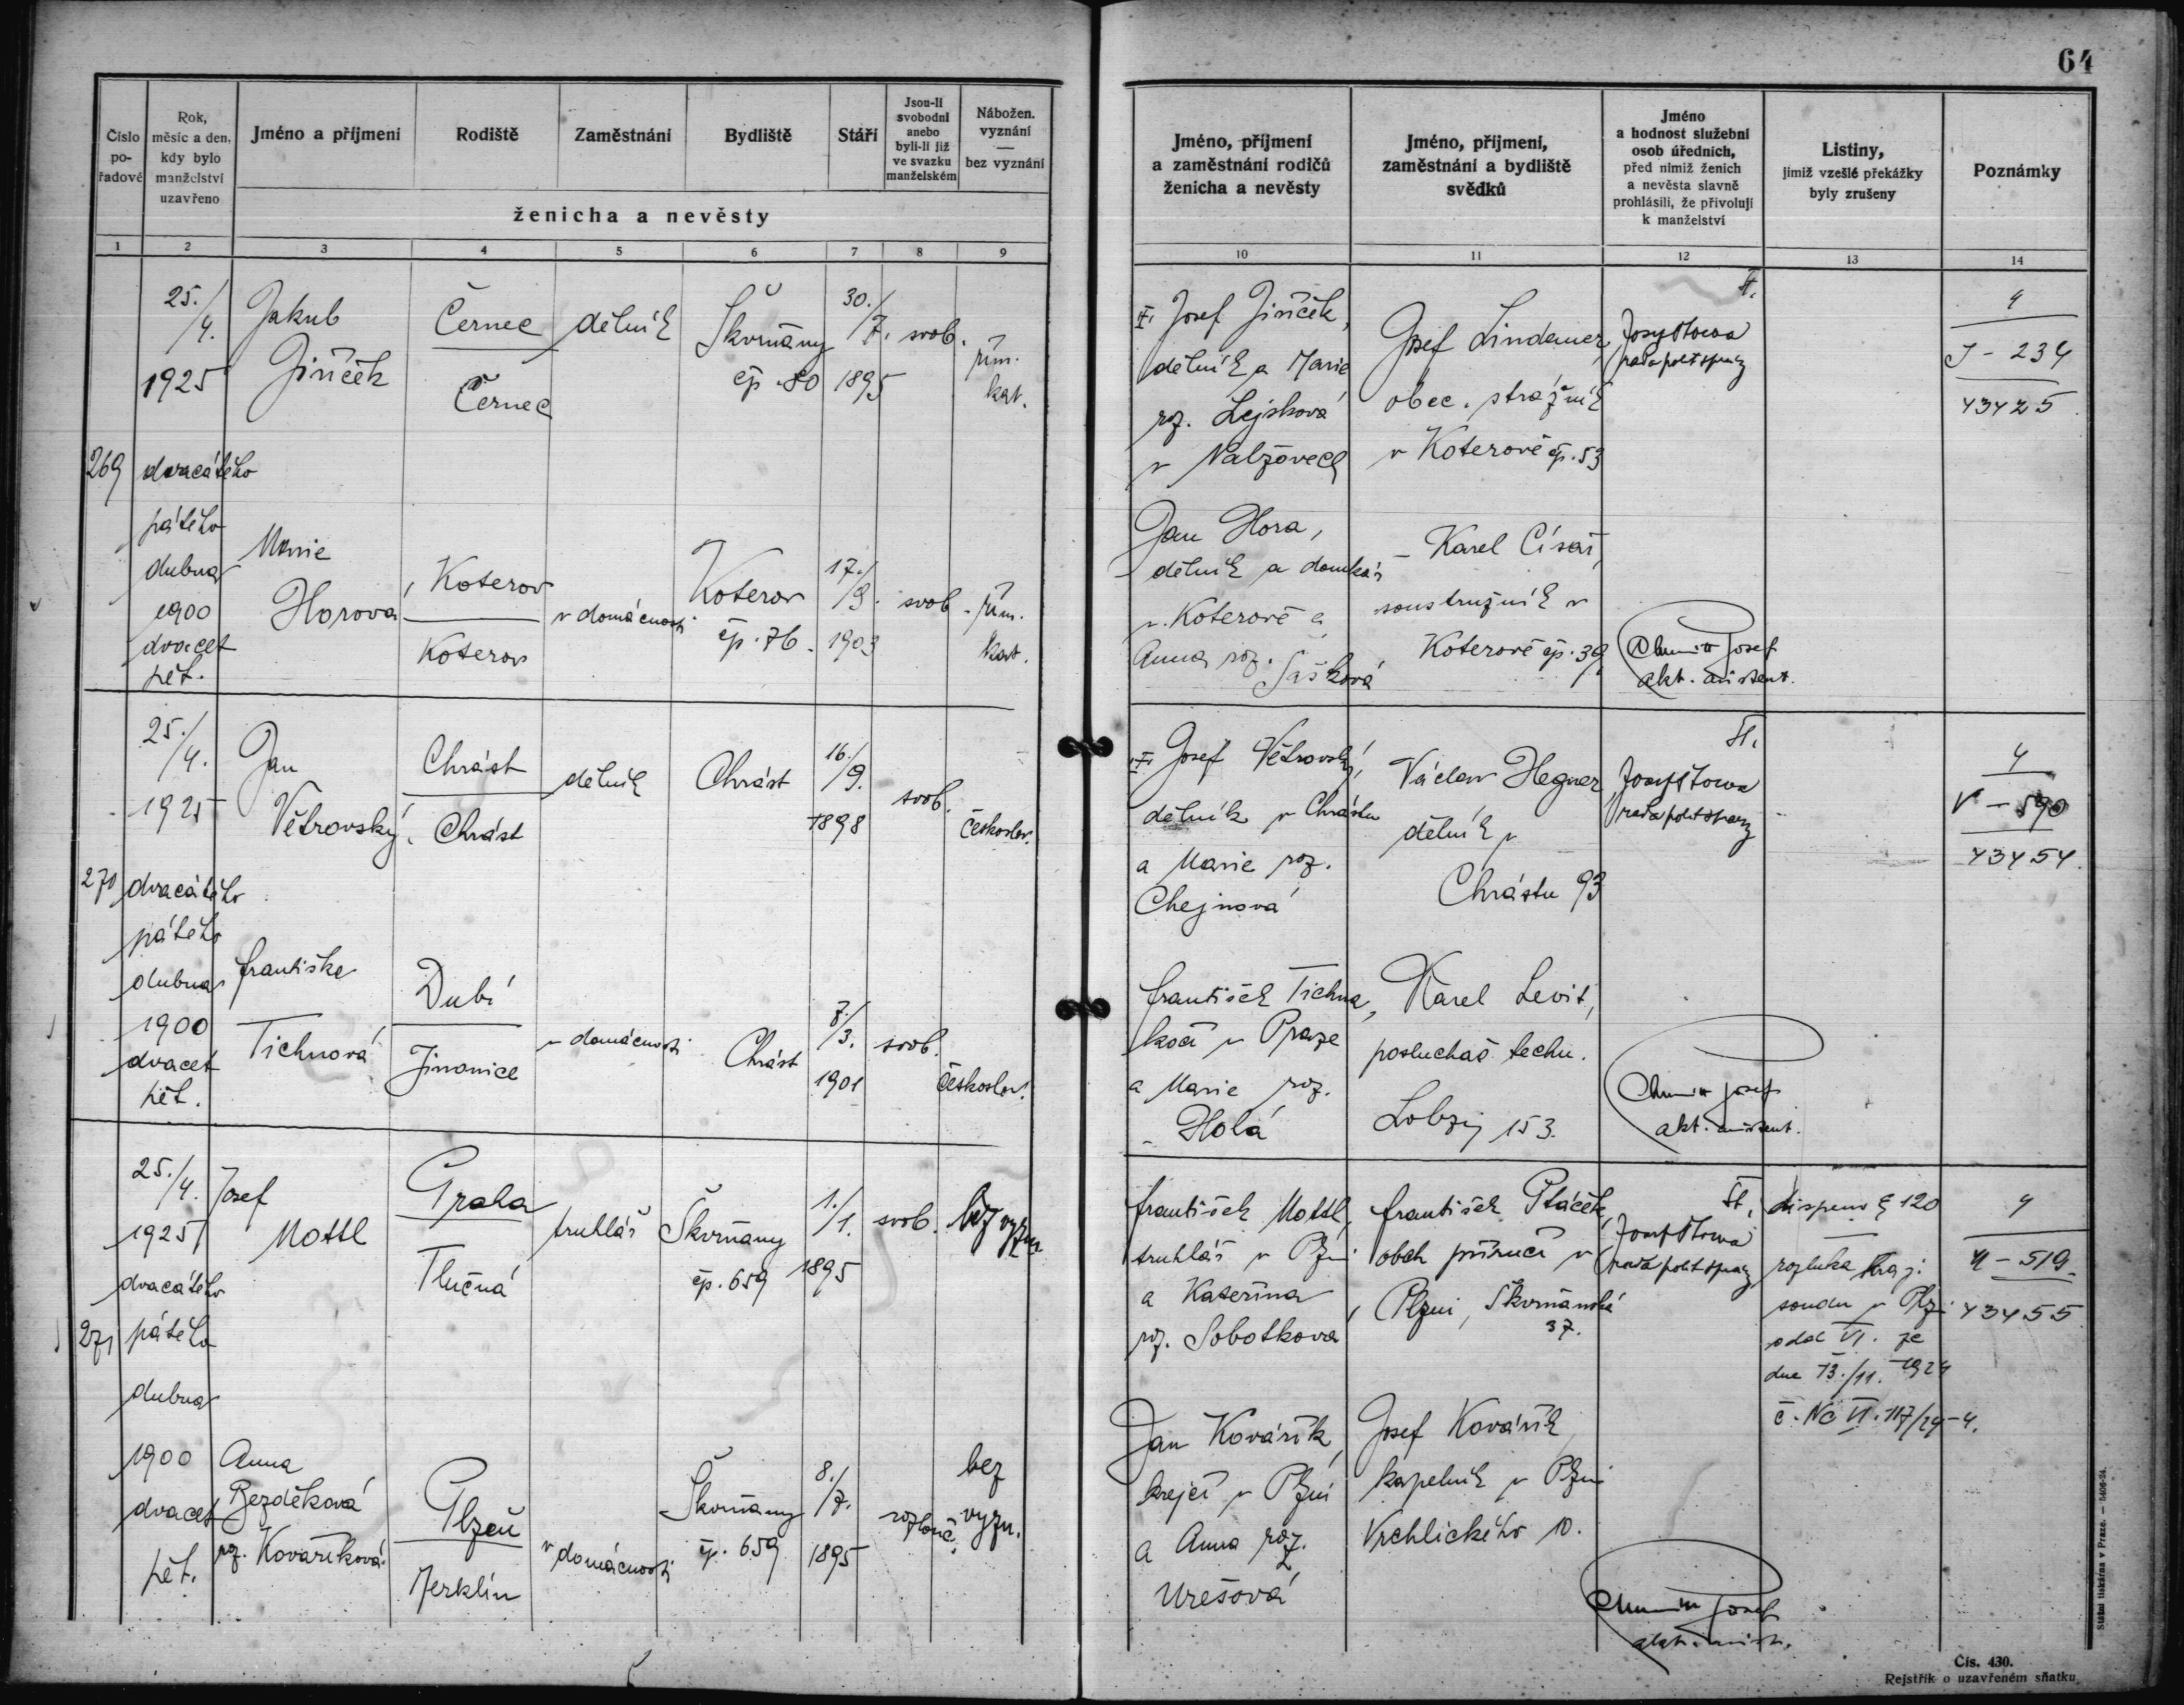 64
Číslo pořadové
Rok, měsíc a den, kdy bylo manželství uzavřeno
Jméno a příjmení
Rodiště
Zaměstnání
Bydliště
Stáří
Jsou-li svobodni anebo byli-li již ve svazku manželském
Nábožen. vyznání — bez vyznání
ženicha a nevěsty
Jméno, příjmení a zaměstnání rodičů ženicha a nevěsty
Jméno, příjmení, zaměstnání a bydliště svědků
Jméno a hodnost služební osob úředních, před nimiž ženich a nevěsta slavně prohlásili, že přivolují k manželství
Listiny, jimiž vzešlé překážky byly zrušeny
Poznámky
1 2 3 4 5 6 7 8 9 10 11 12 13 14
269
25./4. 1925
dvacátého
pátého
dubna
1900
dvacet
pět.
Jakub
Jiříček
Černec
Černec
dělník
Škvrňany
čp. 80
30./7.
1895
svob.
řím.
kat.
Josef Jiříček,
dělník a Marie
roz. Lejsková
v Nalžovech
Josef Lindauer,
obec. strážník
v Koterově čp. 53
rada polit správy
4
J - 234
43425
Marie
Horová
Koterov
Koterov
v domácnosti
Koterov
čp. 76.
17./9.
1903
svob.
řím.
kat.
Jan Hora,
dělník a domkář
v Koterově a
Anna roz.
Šašková
Karel Císař,
soustružník v
Koterově čp. 39
Josef
akt. asistent.
270
25./4.
1925
dvacátého
pátého
dubna
1900
dvacet
pět.
Jan
Větrovský
Chrást
Chrást
dělník
Chrást
16./9.
1898
svob.
českoslov.
Josef Větrovský,
dělník v Chrástu
a Marie roz.
Chejnová
Václav Hegner
dělník v
Chrástu 93
rada polit správy
4
V - 590
43454
Františka
Tichnová
Dubí
Jinonice
v domácnosti
Chrást
7./3.
1901
svob.
českoslov.
František Tichna,
kočí v Praze
a Marie roz.
Holá
Karel Levit,
posluchač techn.
Lobzy 153.
Josef
akt. asistent.
271
25./4.
1925
dvacátého
pátého
dubna
1900
dvacet
pět.
Josef
Mottl
Praha
Tlučná
truhlář
Škvrňany
čp. 659
1./1.
1895
svob.
bez vyzn.
František Mottl,
truhlář v Plzni
a Kateřina
roz. Sobotková
František Ptáček,
obch příručí v
Plzni, Škvrňanská
37.
rada polit správy
dispens § 120
rozluka kraj.
soudu v Plzni
odd VI. ze
dne 13./11. 1924
č. Nc VI. 117/24-4.
4
- 519.
43455
Anna
Bezděková
roz. Kovaříková
Plzeň
Merklín
v domácnosti
Škvrňany
čp. 659
8./7.
1895
rozlouč.
bez
vyzn.
Jan Kovářík
krejčí v Plzni
a Anna roz.
Urešová
Josef Kovářík
kapelník v Plzni
Vrchlického 10.
Josef
Státní tiskárna v Praze. — 5406-24.
Čís. 430.
Rejstřík o uzavřeném sňatku